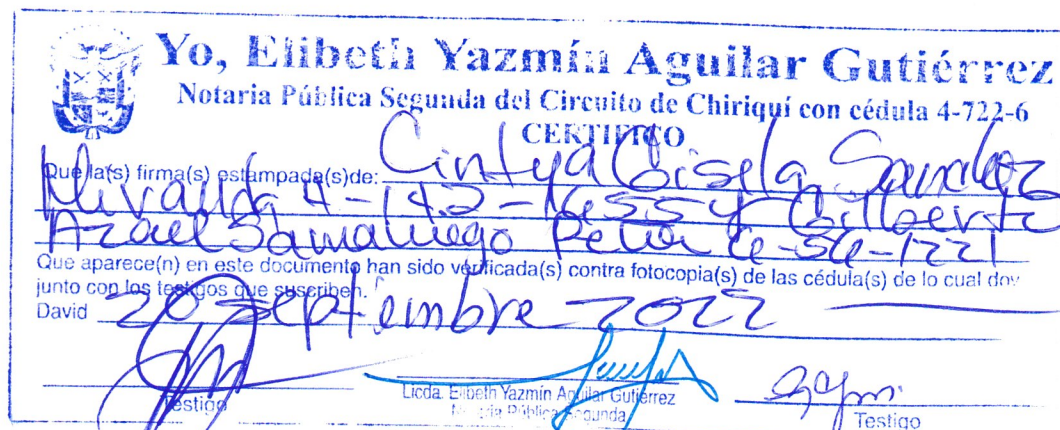 Yo, Elibeth Yazmín Aguilar Gutiérrez
Notaria Pública Segunda del Circuito de Chiriquí con cédula 4-722-6
CERTIFICO
Que la(s) firma(s) estampada(s)de: Cintya Gisela Sanchez
Miranda 4-142-1655 y Gilberto
Azael Samaniego Peña
Que aparece(n) en este documento han sido verificada(s) contra fotocopia(s) de las cédula(s) de lo cual doy
junto con los testigos que suscriben.
David 20 septiembre 2022
Testigo
Licda. Elibeth Yazmín Aguilar Gutiérrez
Notaria Pública Segunda
Testigo